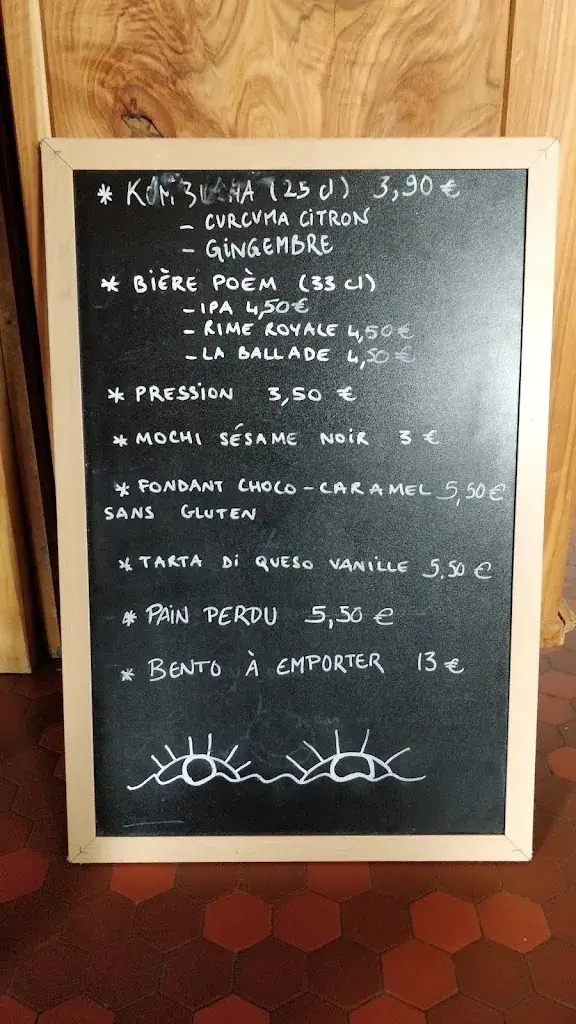 * KOMBUCHA (25 cl) 3,90 €
- CURCUMA CITRON
- GINGEMBRE
* BIÈRE POÈM (33 cl)
- IPA 4,50 €
- RIME ROYALE 4,50 €
- LA BALLADE 4,50 €
* PRESSION 3,50 €
* MOCHI SÉSAME NOIR 3 €
* FONDANT CHOCO-CARAMEL 5,50 €
SANS GLUTEN
* TARTA DI QUESO VANILLE 5,50 €
* PAIN PERDU 5,50 €
* BENTO À EMPORTER 13 €